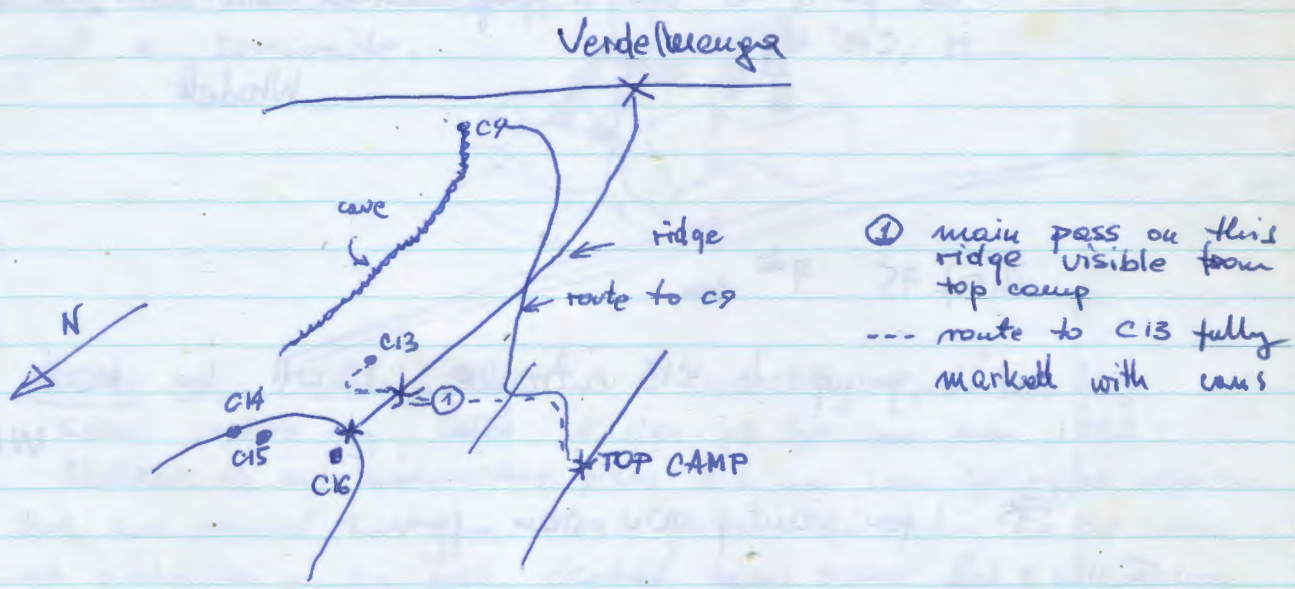 Verdelluenga
C9
cave
ridge
route to C9
N
C13
C14
C15
C16
①
TOP CAMP
① main pass on this
ridge visible from
top camp
--- route to C13 fully
markedd with cans